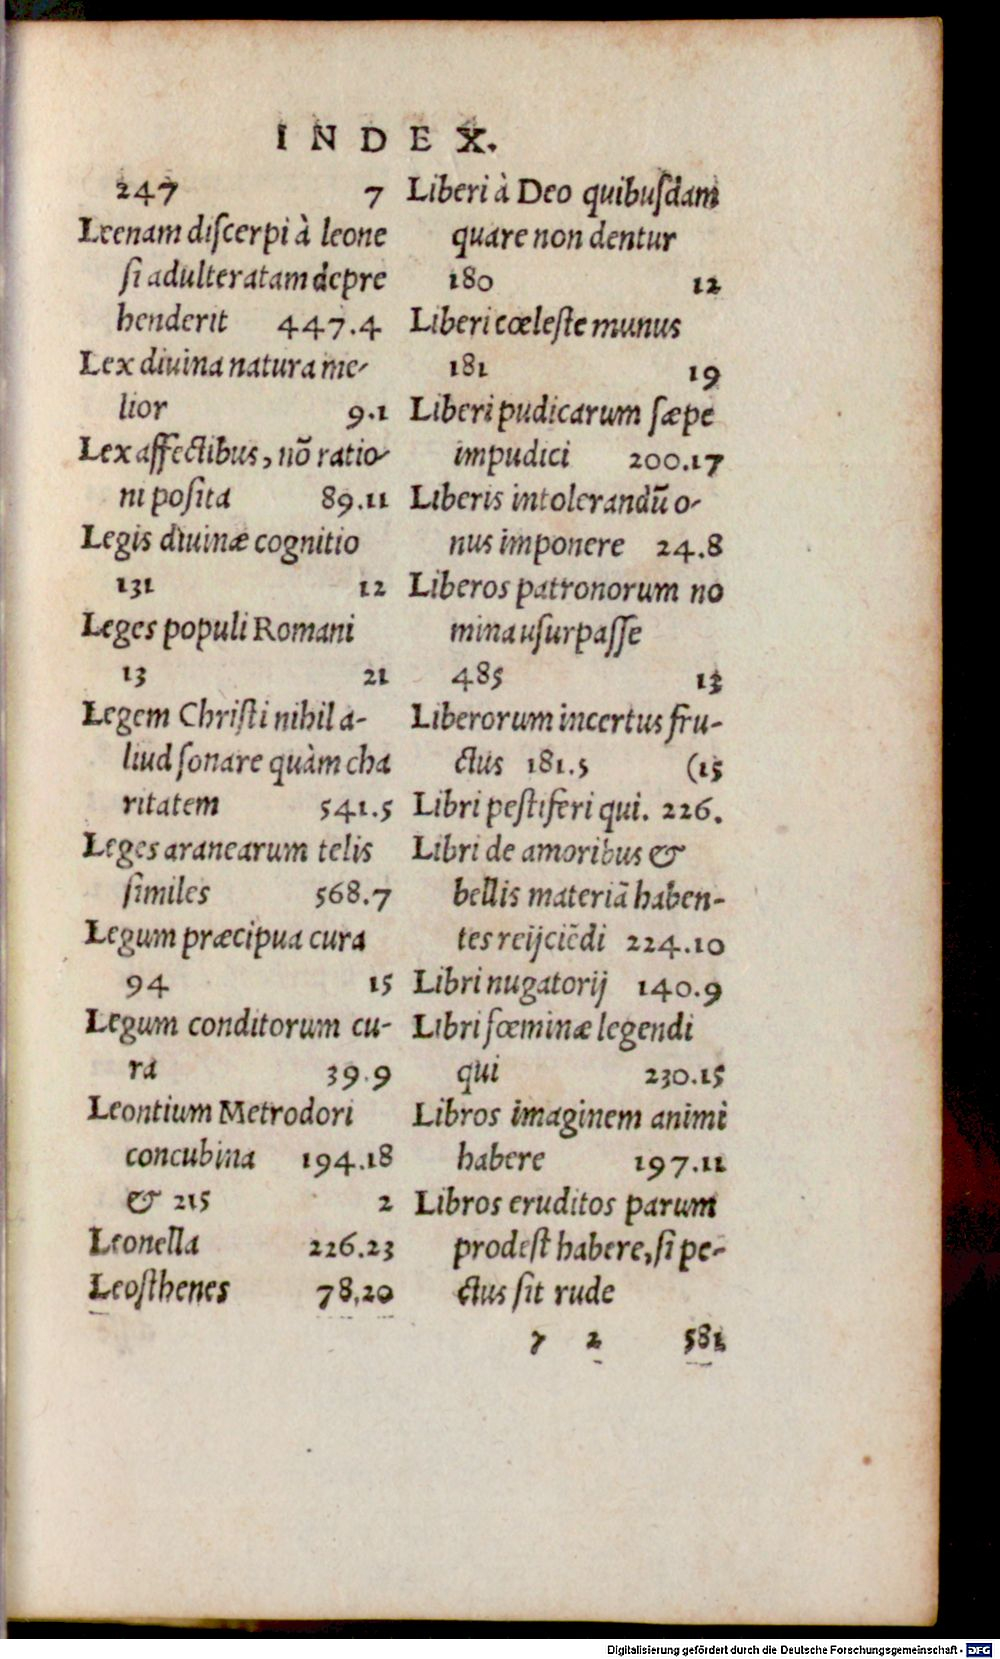 INDEX.
247 7
Leenam discerpi à leone
si adulteratam depre
henderit 447.4
Lex diuina natura me-
lior 9.1
Lex affectibus, nõ ratio-
ni posita 89.11
Legis diuinæ cognitio
131 12
Leges populi Romani
13 21
Legem Christi nihil a-
liud sonare quàm cha
ritatem 541.5
Leges aranearum telis
similes 568.7
Legum præcipua cura
94 15
Legum conditorum cu-
ra 39.9
Leontium Metrodori
concubina 194.18
& 215 2
Leonella 226.23
Leosthenes 78.20
Liberi à Deo quibusdam
quare non dentur
180 12
Liberi cœleste munus
181 19
Liberi pudicarum sæpe
impudici 200.17
Liberis intolerandũ o-
nus imponere 24.8
Liberos patronorum no
mina usurpasse
485 13
Liberorum incertus fru-
ctus 181.5 (15
Libri pestiferi qui. 226.
Libri de amoribus &
bellis materiã haben-
tes reijciẽdi 224.10
Libri nugatorij 140.9
Libri fœminæ legendi
qui 230.15
Libros imaginem animi
habere 197.11
Libros eruditos parum
prodest habere, si pe-
ctus sit rude
y 2 581
Digitalisierung gefördert durch die Deutsche Forschungsgemeinschaft - DFG